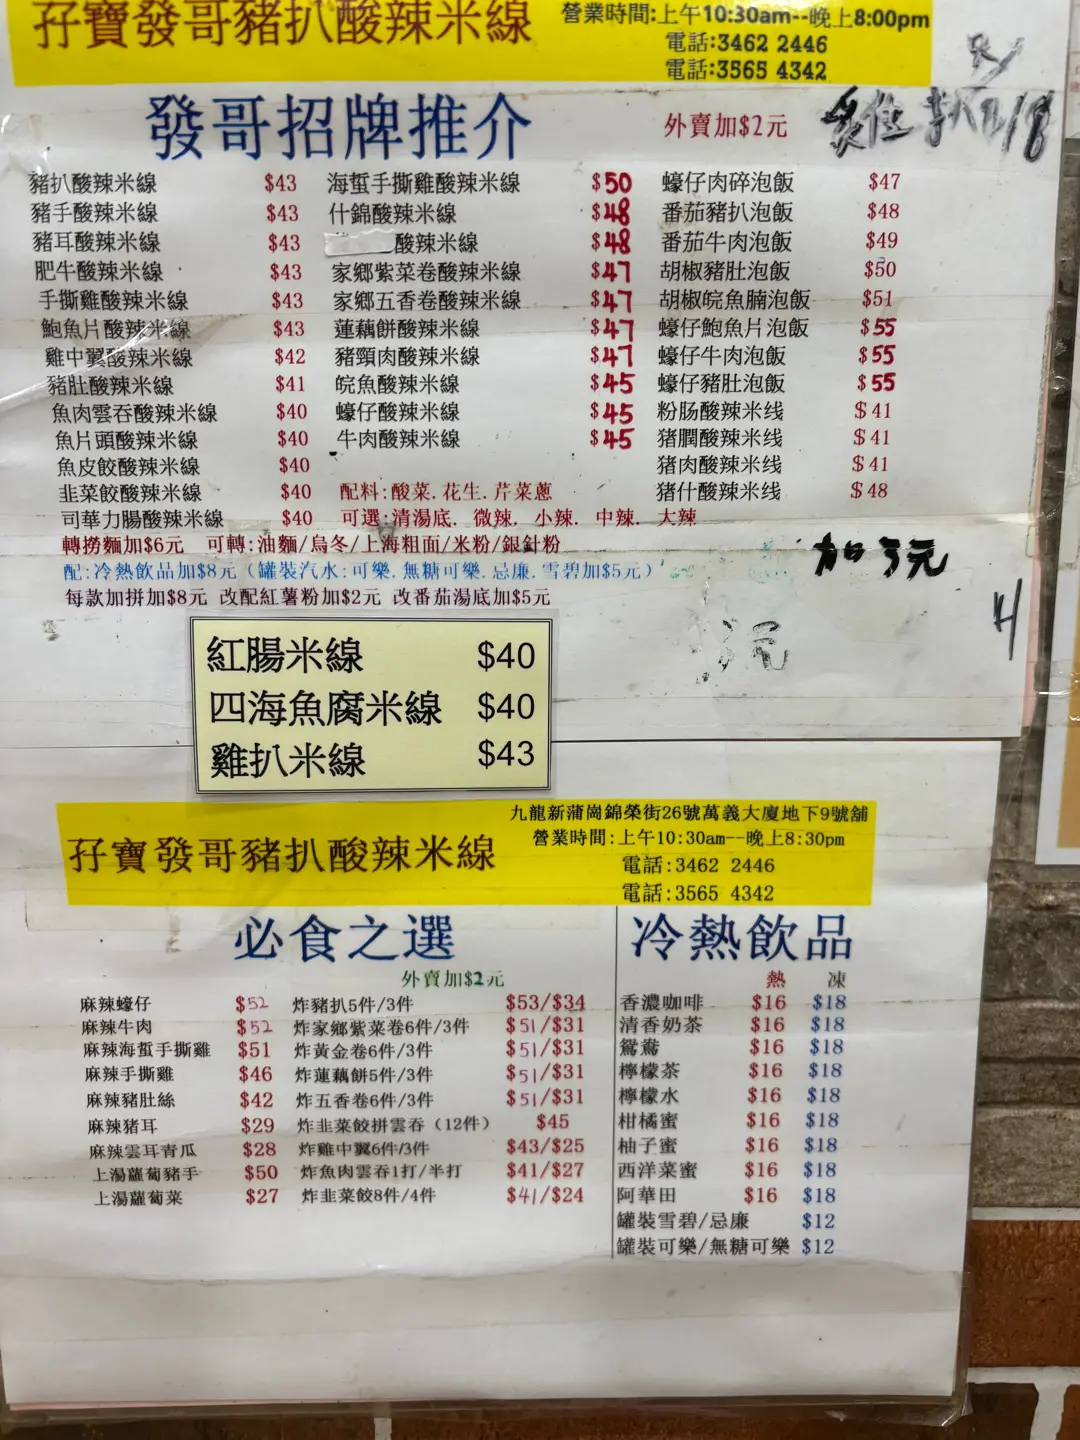 孖寶發哥豬扒酸辣米線
營業時間:上午10:30am--晚上8:00pm
電話:3462 2446
電話:3565 4342
發哥招牌推介
外賣加$2元
豬扒酸辣米線 $43
豬手酸辣米線 $43
豬耳酸辣米線 $43
肥牛酸辣米線 $43
手撕雞酸辣米線 $43
鮑魚片酸辣米線 $43
雞中翼酸辣米線 $42
豬肚酸辣米線 $41
魚肉雲吞酸辣米線 $40
魚片頭酸辣米線 $40
魚皮餃酸辣米線 $40
韭菜餃酸辣米線 $40
司華力腸酸辣米線 $40
海蜇手撕雞酸辣米線 $50
什錦酸辣米線 $48
酸辣米線 $48
家鄉紫菜卷酸辣米線 $47
家鄉五香卷酸辣米線 $47
蓮藕餅酸辣米線 $47
豬頸肉酸辣米線 $47
皖魚酸辣米線 $45
蠔仔酸辣米線 $45
牛肉酸辣米線 $45
蠔仔肉碎泡飯 $47
番茄豬扒泡飯 $48
番茄牛肉泡飯 $49
胡椒豬肚泡飯 $50
胡椒皖魚腩泡飯 $51
蠔仔鮑魚片泡飯 $55
蠔仔牛肉泡飯 $55
蠔仔豬肚泡飯 $55
粉肠酸辣米线 $41
猪膶酸辣米线 $41
猪肉酸辣米线 $41
猪什酸辣米线 $48
配料:酸菜.花生.芹菜蔥
可選:清湯底. 微辣. 小辣. 中辣. 大辣
轉撈麵加$6元 可轉:油麵/烏冬/上海粗面/米粉/銀針粉
配:冷熱飲品加$8元（罐裝汽水:可樂.無糖可樂.忌廉.雪碧加$5元）
加3元
每款加拼加$8元 改配紅薯粉加$2元 改番茄湯底加$5元
元
紅腸米線 $40
四海魚腐米線 $40
雞扒米線 $43
孖寶發哥豬扒酸辣米線
九龍新蒲崗錦榮街26號萬義大廈地下9號舖
營業時間:上午10:30am--晚上8:30pm
電話:3462 2446
電話:3565 4342
必食之選
外賣加$2元
麻辣蠔仔 $52
麻辣牛肉 $52
麻辣海蜇手撕雞 $51
麻辣手撕雞 $46
麻辣豬肚絲 $42
麻辣豬耳 $29
麻辣雲耳青瓜 $28
上湯蘿蔔豬手 $50
上湯蘿蔔菜 $27
炸豬扒5件/3件 $53/$34
炸家鄉紫菜卷6件/3件 $51/$31
炸黃金卷6件/3件 $51/$31
炸蓮藕餅5件/3件 $51/$31
炸五香卷6件/3件 $51/$31
炸韭菜餃拼雲吞（12件） $45
炸雞中翼6件/3件 $43/$25
炸魚肉雲吞1打/半打 $41/$27
炸韭菜餃8件/4件 $41/$24
冷熱飲品
熱 凍
香濃咖啡 $16 $18
清香奶茶 $16 $18
鴛鴦 $16 $18
檸檬茶 $16 $18
檸檬水 $16 $18
柑橘蜜 $16 $18
柚子蜜 $16 $18
西洋菜蜜 $16 $18
阿華田 $16 $18
罐裝雪碧/忌廉 $12
罐裝可樂/無糖可樂 $12